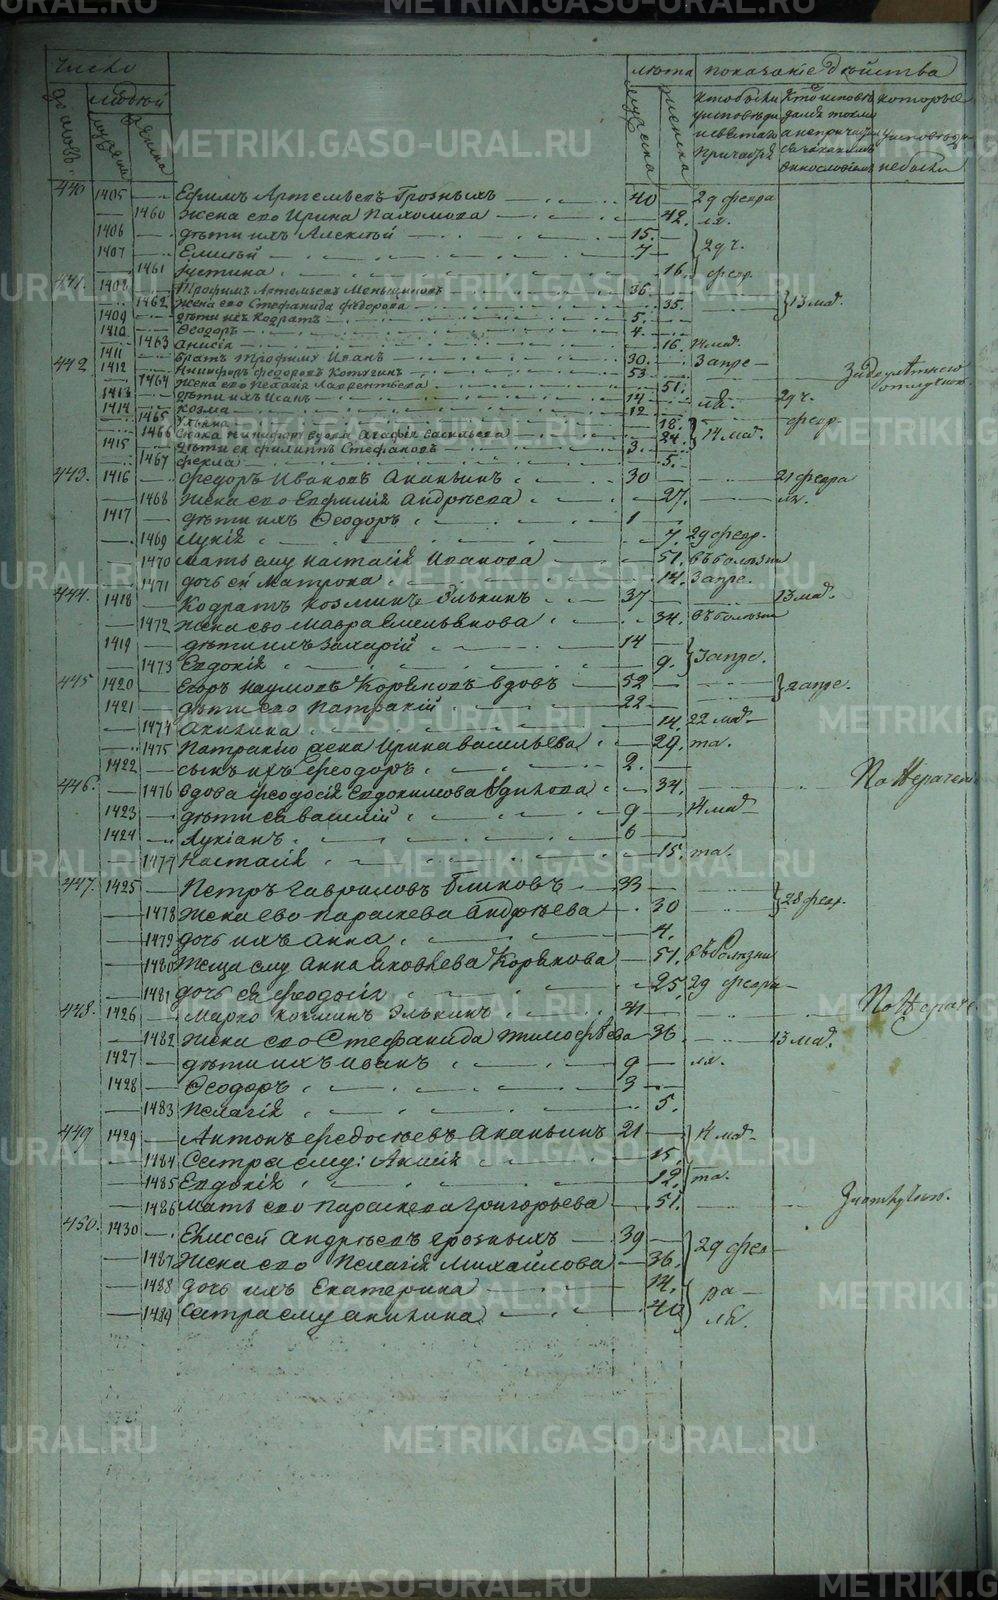 METRIKI.GASO-URAL.RU
число
людей
лѣта показаніе дѣйства
мужска женска
440 1405 Ефимъ Артемьевъ Грозныхъ 40 29 февра
1460 жена ево Ирина Пахомова 42. ля.
1406 дѣти ихъ Алексѣй 15.
1407 Елисѣй 7 29 ч.
1461 Iустина 16. февр.
441. 1408 Трофимъ Артемьевъ Меньшиковъ 36
1462 жена ево Стефанида Федорова 35. 13 мар.
1409 дѣти ихъ Кодратъ 5.
1410 Ѳеодоръ 4.
1463 Анисiя 16. 14 мар.
1411 братъ Трофиму Иванъ 30. 3 апре
442 1412 Никифоръ Федоровъ Котягинъ 53
1464 жена ево Пелагiя Лаврентьева 51.
1413 дѣти ихъ Исакъ 14 29 ч.
1414 Козма 12 ля. февр.
1465 Ульяна 18.
1466 сноха Никифору вдова Агафiя Васильева 24. 14 мар.
1415 дѣти ея Филиппъ Стефановъ 3.
1467 Фекла 5.
443. 1416 Федоръ Ивановъ Ананьинъ 30 21 февра
1468 жена ево Евфимiя Андрѣева 27. ля.
1417 дѣти ихъ Ѳеодоръ 1
1469 Лукiя 7. 29 февр.
1470 мать ему Настасiя Иванова 51. въ болѣзни
1471 дочь ея Матрона 14. 3 апре.
444. 1418 Кодратъ Козминъ Элькинъ 37 13 мар.
1472 жена ево Мавра Емельянова 34. въ болѣзни
1419 дѣти ихъ Захарiй 14
1473 Евдокiя 9. 3 апре.
445 1420 Егоръ Наумовъ Коряковъ вдовъ 52 2 апре.
1421 дѣти ево Патракiй 22
1474 Акилина 14. 22 мар
1475 Патракiю жена Ирина Васильева 29. та.
1422 сынъ ихъ Феодоръ 2.
446. 1476 вдова Феодосiя Евдокимова 34. По Нераченiю
1423 дѣти ея Василiй 9 14 мар
1424 Лукiанъ 6
1477 Настасiя 15. та.
447. 1425 Петръ Гавриловъ Блиновъ 33 28 февр.
1478 жена ево Параскева Андрѣева 30
1479 дочь ихъ Анна 4.
1480 теща ему Анна Яковлева Корякова 51. въ болѣзни
1481 дочь ея Феодосiя 25. 29 февра
448. 1426 Марко Козминъ Элькинъ 41 По Нераче
1482 жена ево Стефанида Тимофѣева 36 13 мар.
1427 дѣти ихъ Иванъ 9 ля.
1428 Ѳеодоръ 3
1483 Пелагiя 5.
449 1429 Антонъ Федосѣевъ Ананьинъ 21 14 мар
1484 Сестра ему: Анисiя 15.
1485 Евдокiя 12. та.
1486 мать ево Параскева Григорьева 51.
450. 1430 Елисей Андрѣевъ Грозныхъ 39 29 фев
1487 жена ево Пелагiя Михайлова 36.
1488 дочь ихъ Екатерина 14. ра
1489 Сестра ему Акилина 40 ля.